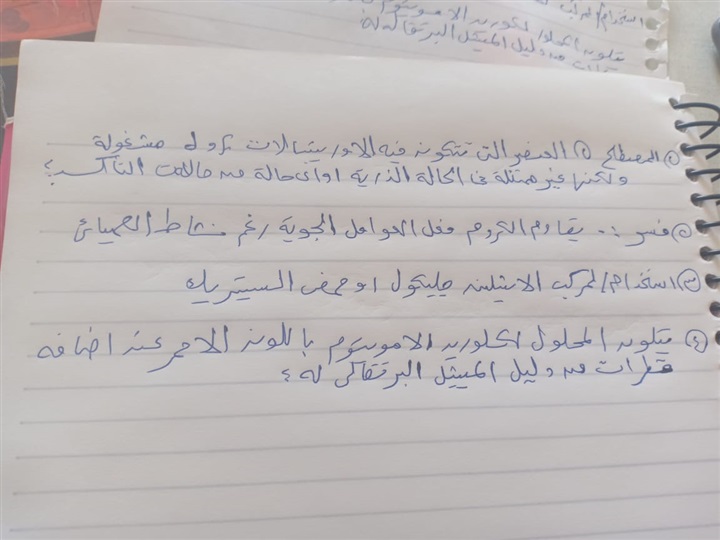 استخدام المركب
يتلون المحلول لكلوريد الامونيوم
قطرات من دليل الميثيل البرتقالى له
① المصطلح ⑤ العنصر التى تتكون فيه الاوربيتالات d , f مشغولة
ولكنها غير ممتلئة فى الحالة الذرية او اى حالة من حالات التأكسد؟
② فسر :. يقاوم الكروم فعل العوامل الجوية رغم نشاط الكميائى
③ استخدام / لمركب الايثيلين جليكول او حمض الستيريك
④ يتلون المحلول لكلوريد الامونيوم باللون الاحمر عند اضافه
قطرات من دليل الميثيل البرتقالى له ؟